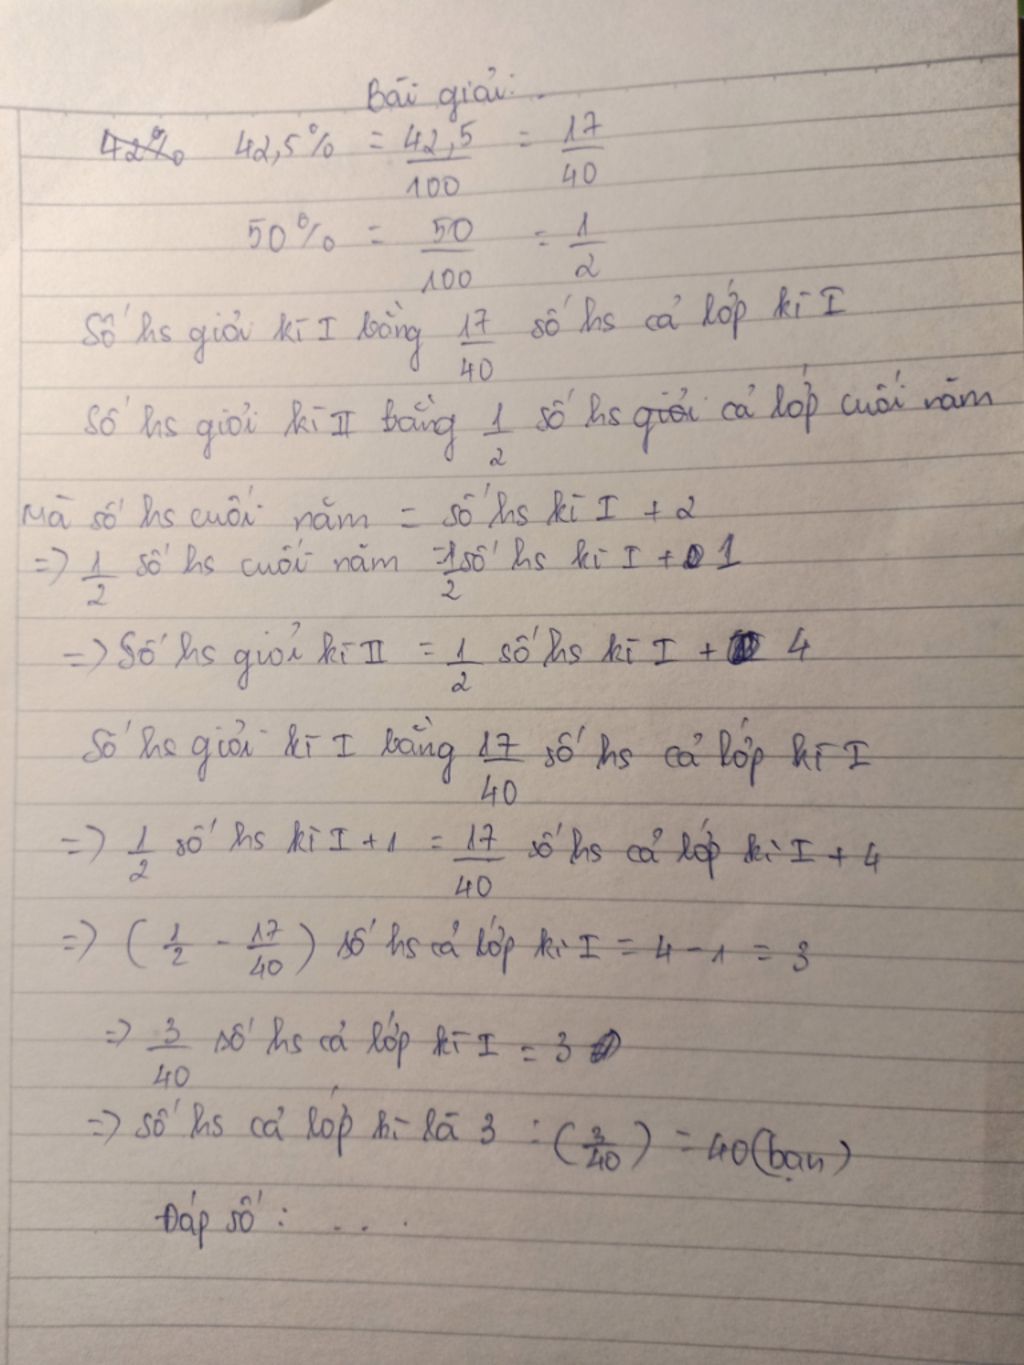 Bài giải:
42% 42,5% = 42,5/100 = 17/40
50% = 50/100 = 1/2
Số hs giỏi kì I bằng 17/40 số hs cả lớp kì I
Số hs giỏi kì II bằng 1/2 số hs giỏi cả lớp cuối năm
Mà số hs cuối năm = số hs kì I + 2
=> 1/2 số hs cuối năm = 1/2 số hs kì I + 1
=> Số hs giỏi kì II = 1/2 số hs kì I + 4
Số hs giỏi kì I bằng 17/40 số hs cả lớp kì I
=> 1/2 số hs kì I + 1 = 17/40 số hs cả lớp kì I + 4
=> (1/2 - 17/40) số hs cả lớp kì I = 4 - 1 = 3
=> 3/40 số hs cả lớp kì I = 3
=> số hs cả lớp kì là 3 : (3/40) = 40 (bạn)
Đáp số: ...